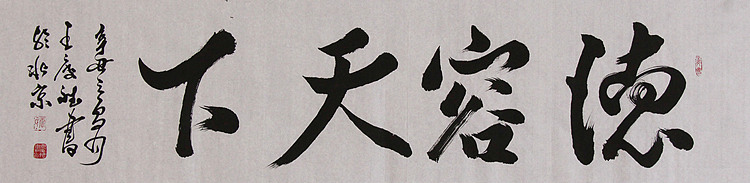 德容天下
辛丑之夏月
王庆科书
於北京